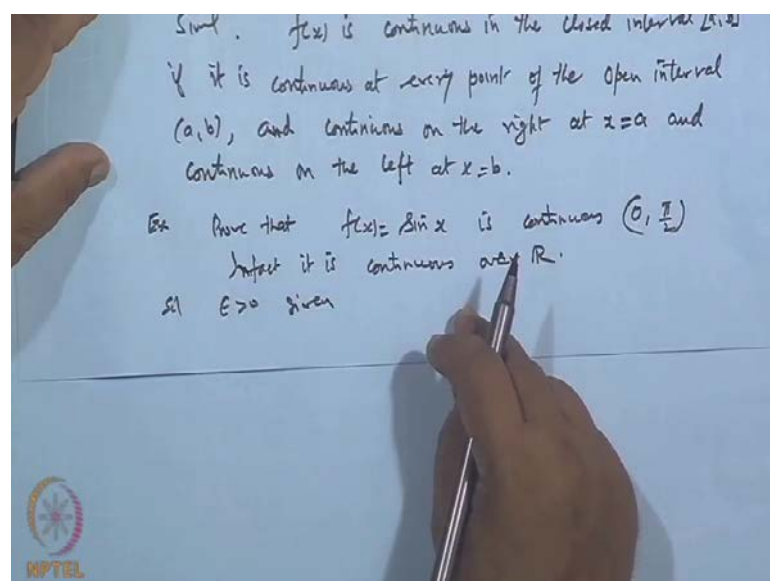 f(x) is continuous in the closed interval [a,b]
if it is continuous at every point of the open interval
(a,b), and continuous on the right at x=a and
continuous on the left at x=b.
Ex Prove that f(x)= Sin x is continuous (0, π/2)
Infact it is continuous over R.
Sol ε>0 given
NPTEL